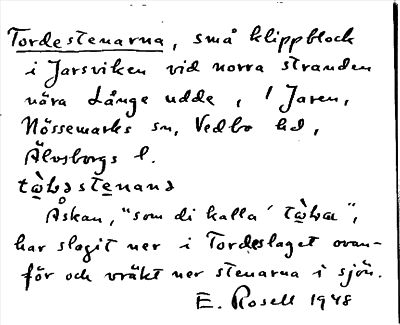 Tordestenarna, små klippblock
i Jarsviken vid norra stranden
nära Långe udde, i Jaren,
Nössemarks sn, Vedbo hd,
Älvsborgs l.
Åskan, "som di kalla'
har slagit ner i Tordeslaget ovan-
för och vräkt ner stenarna i sjön.
E. Rosell 1948